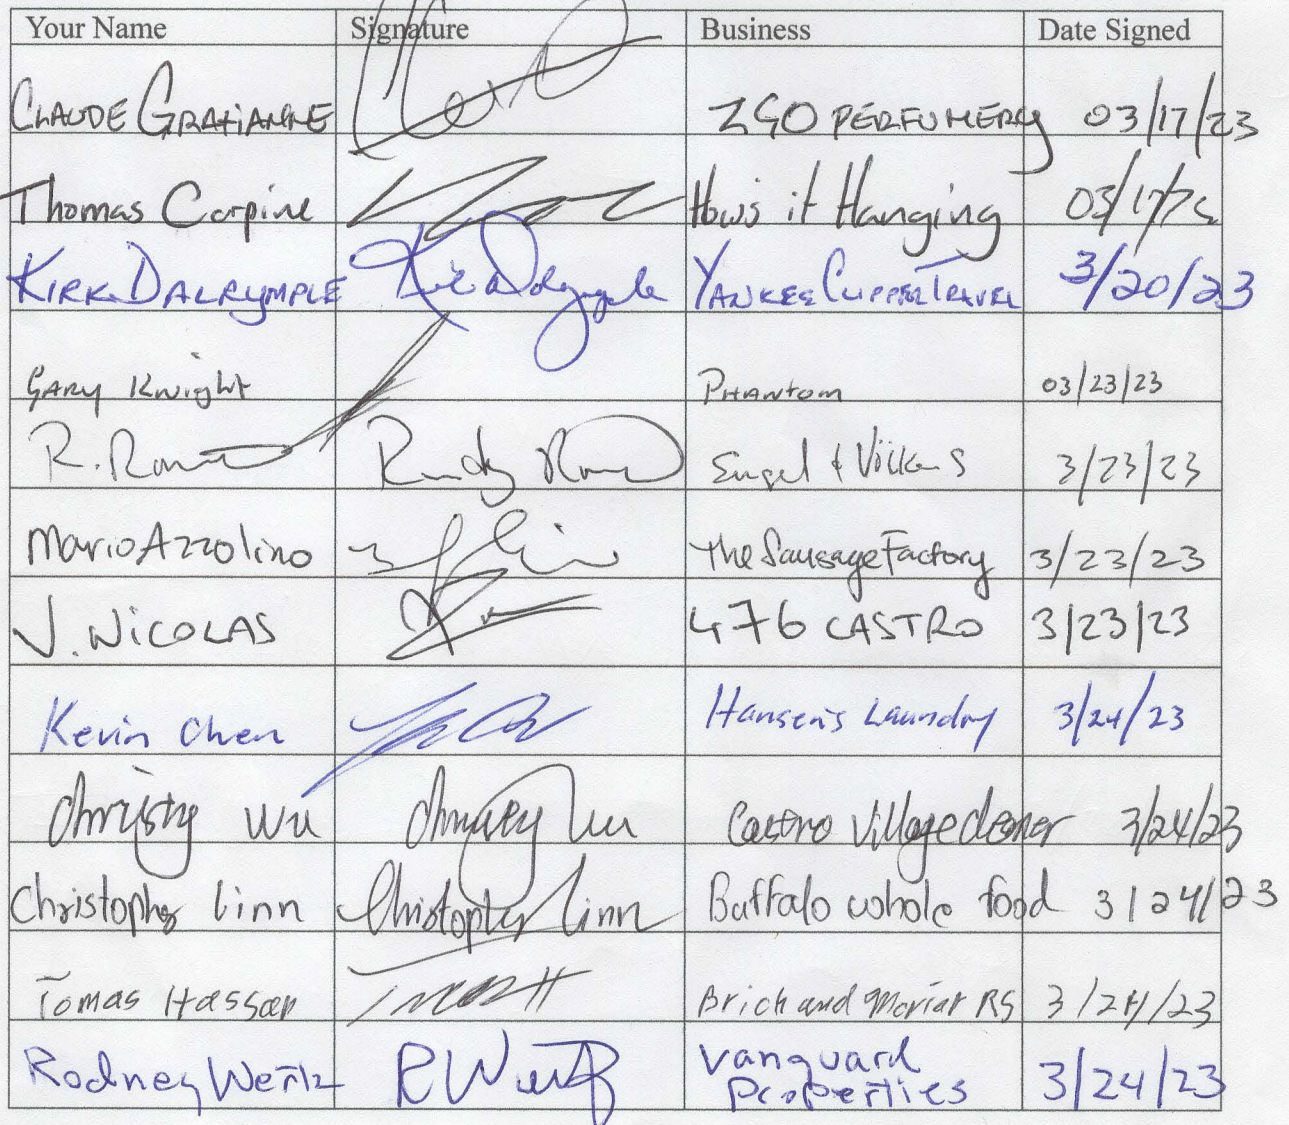 Your Name Signature Business Date Signed
CLAUDE GRATIANNE ZGO PERFUMERY 03/17/23
Thomas Carpine How's it Hanging 03/17/
KIRK DALRYMPLE Kirk Dalrymple YANKEE CLIPPER TRAVEL 3/20/23
GARY Knight PHANTOM 03/23/23
R. Randy Engel & Völkers 3/23/23
Mario Azzolino The Sausage Factory 3/23/23
J. NICOLAS 476 CASTRO 3/23/23
Kevin Chen Hansen's Laundry 3/24/23
Christy Wu Christy Wu Castro Village cleaner 3/24/23
Christopher Linn Christopher Linn Buffalo whole food 3/24/23
Tomas Hassan Brick and Mortar RS 3/24/23
Rodney Wertz R Wertz Vanguard
Properties 3/24/23